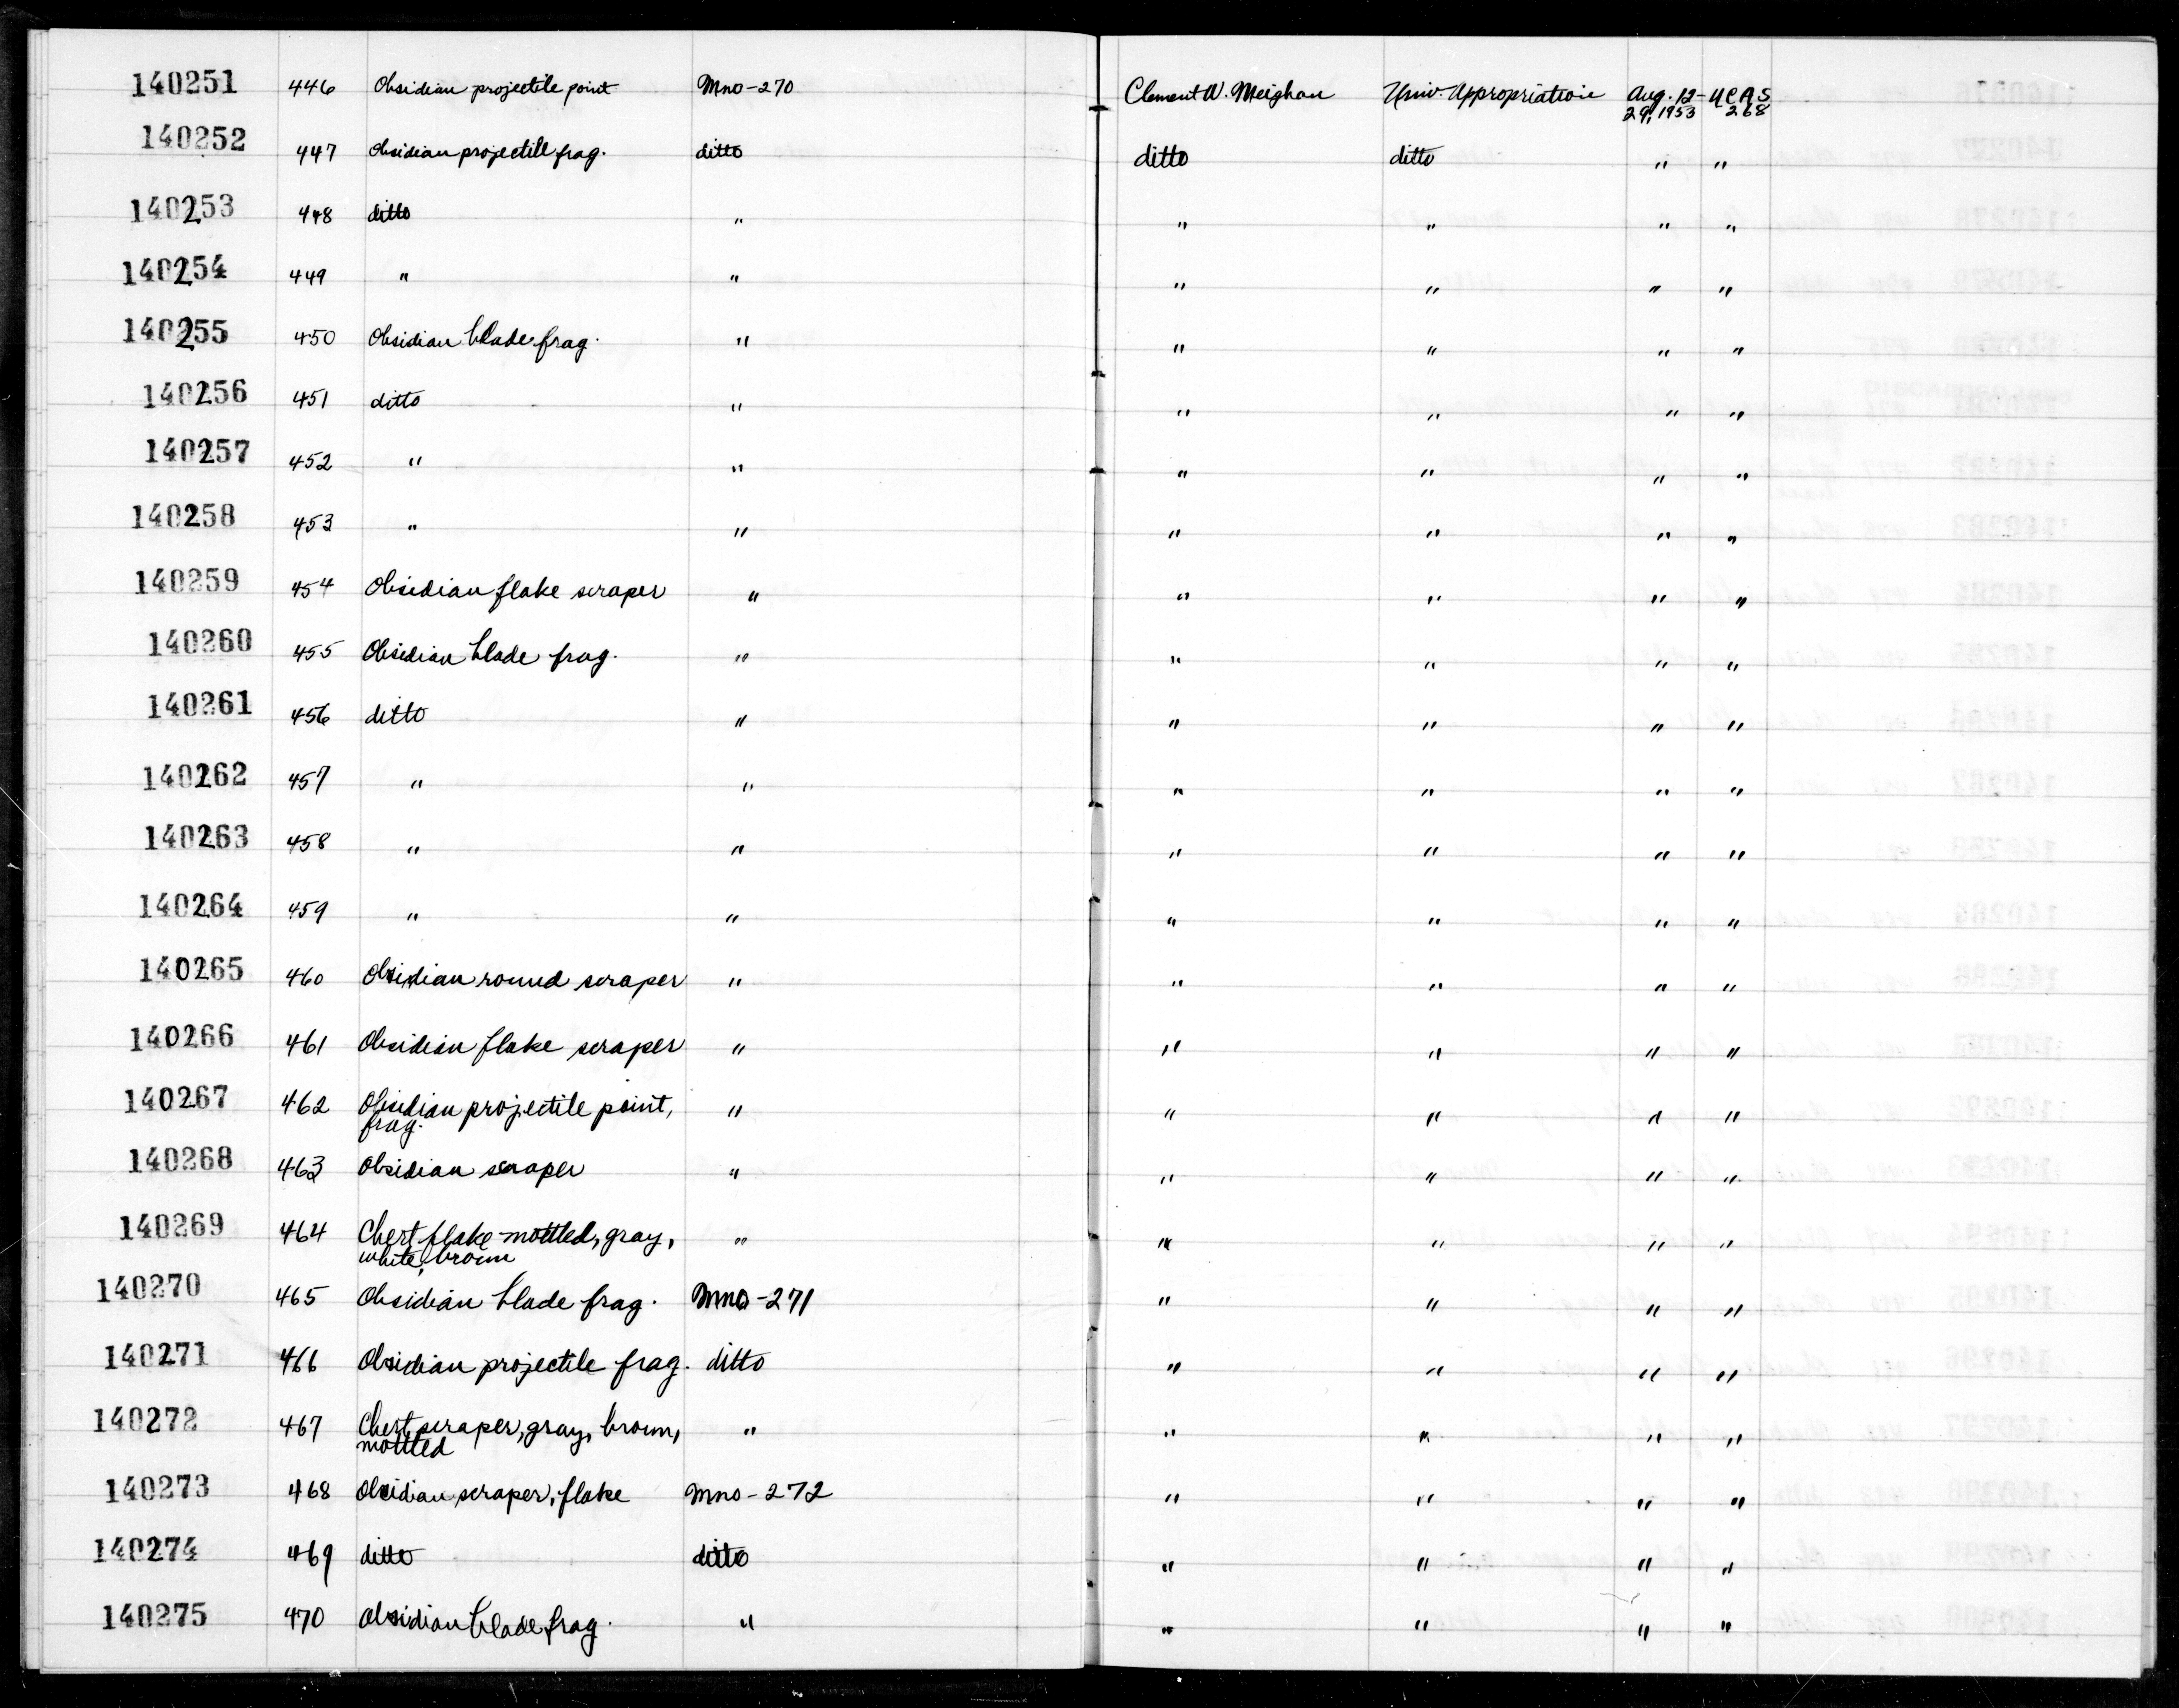 140251 446 Obsidian projectile point Mno-270 Clement W. Meighan Univ. Appropriation Aug. 12- UCAS
29, 1953 268
140252 447 Obsidian projectile frag. ditto ditto ditto " "
140253 448 ditto " " " " "
140254 449 " " " " " "
140255 450 Obsidian blade frag. " " " " "
140256 451 ditto " " " " "
140257 452 " " " " " "
140258 453 " " " " " "
140259 454 Obsidian flake scraper " " " " "
140260 455 Obsidian blade frag. " " " " "
140261 456 ditto " " " " "
140262 457 " " " " " "
140263 458 " " " " " "
140264 459 " " " " " "
140265 460 Obsidian round scraper " " " " "
140266 461 Obsidian flake scraper " " " " "
140267 462 Obsidian projectile point, " " " " "
frag.
140268 463 Obsidian scraper " " " " "
140269 464 Chert flake-mottled, gray, " " " " "
white, brown
140270 465 Obsidian blade frag. Mno-271 " " " "
140271 466 Obsidian projectile frag. ditto " " " "
140272 467 Chert scraper, gray, brown, " " " " "
mottled
140273 468 Obsidian scraper, flake Mno-272 " " " "
140274 469 ditto ditto " " " "
140275 470 Obsidian blade frag. " " " " "